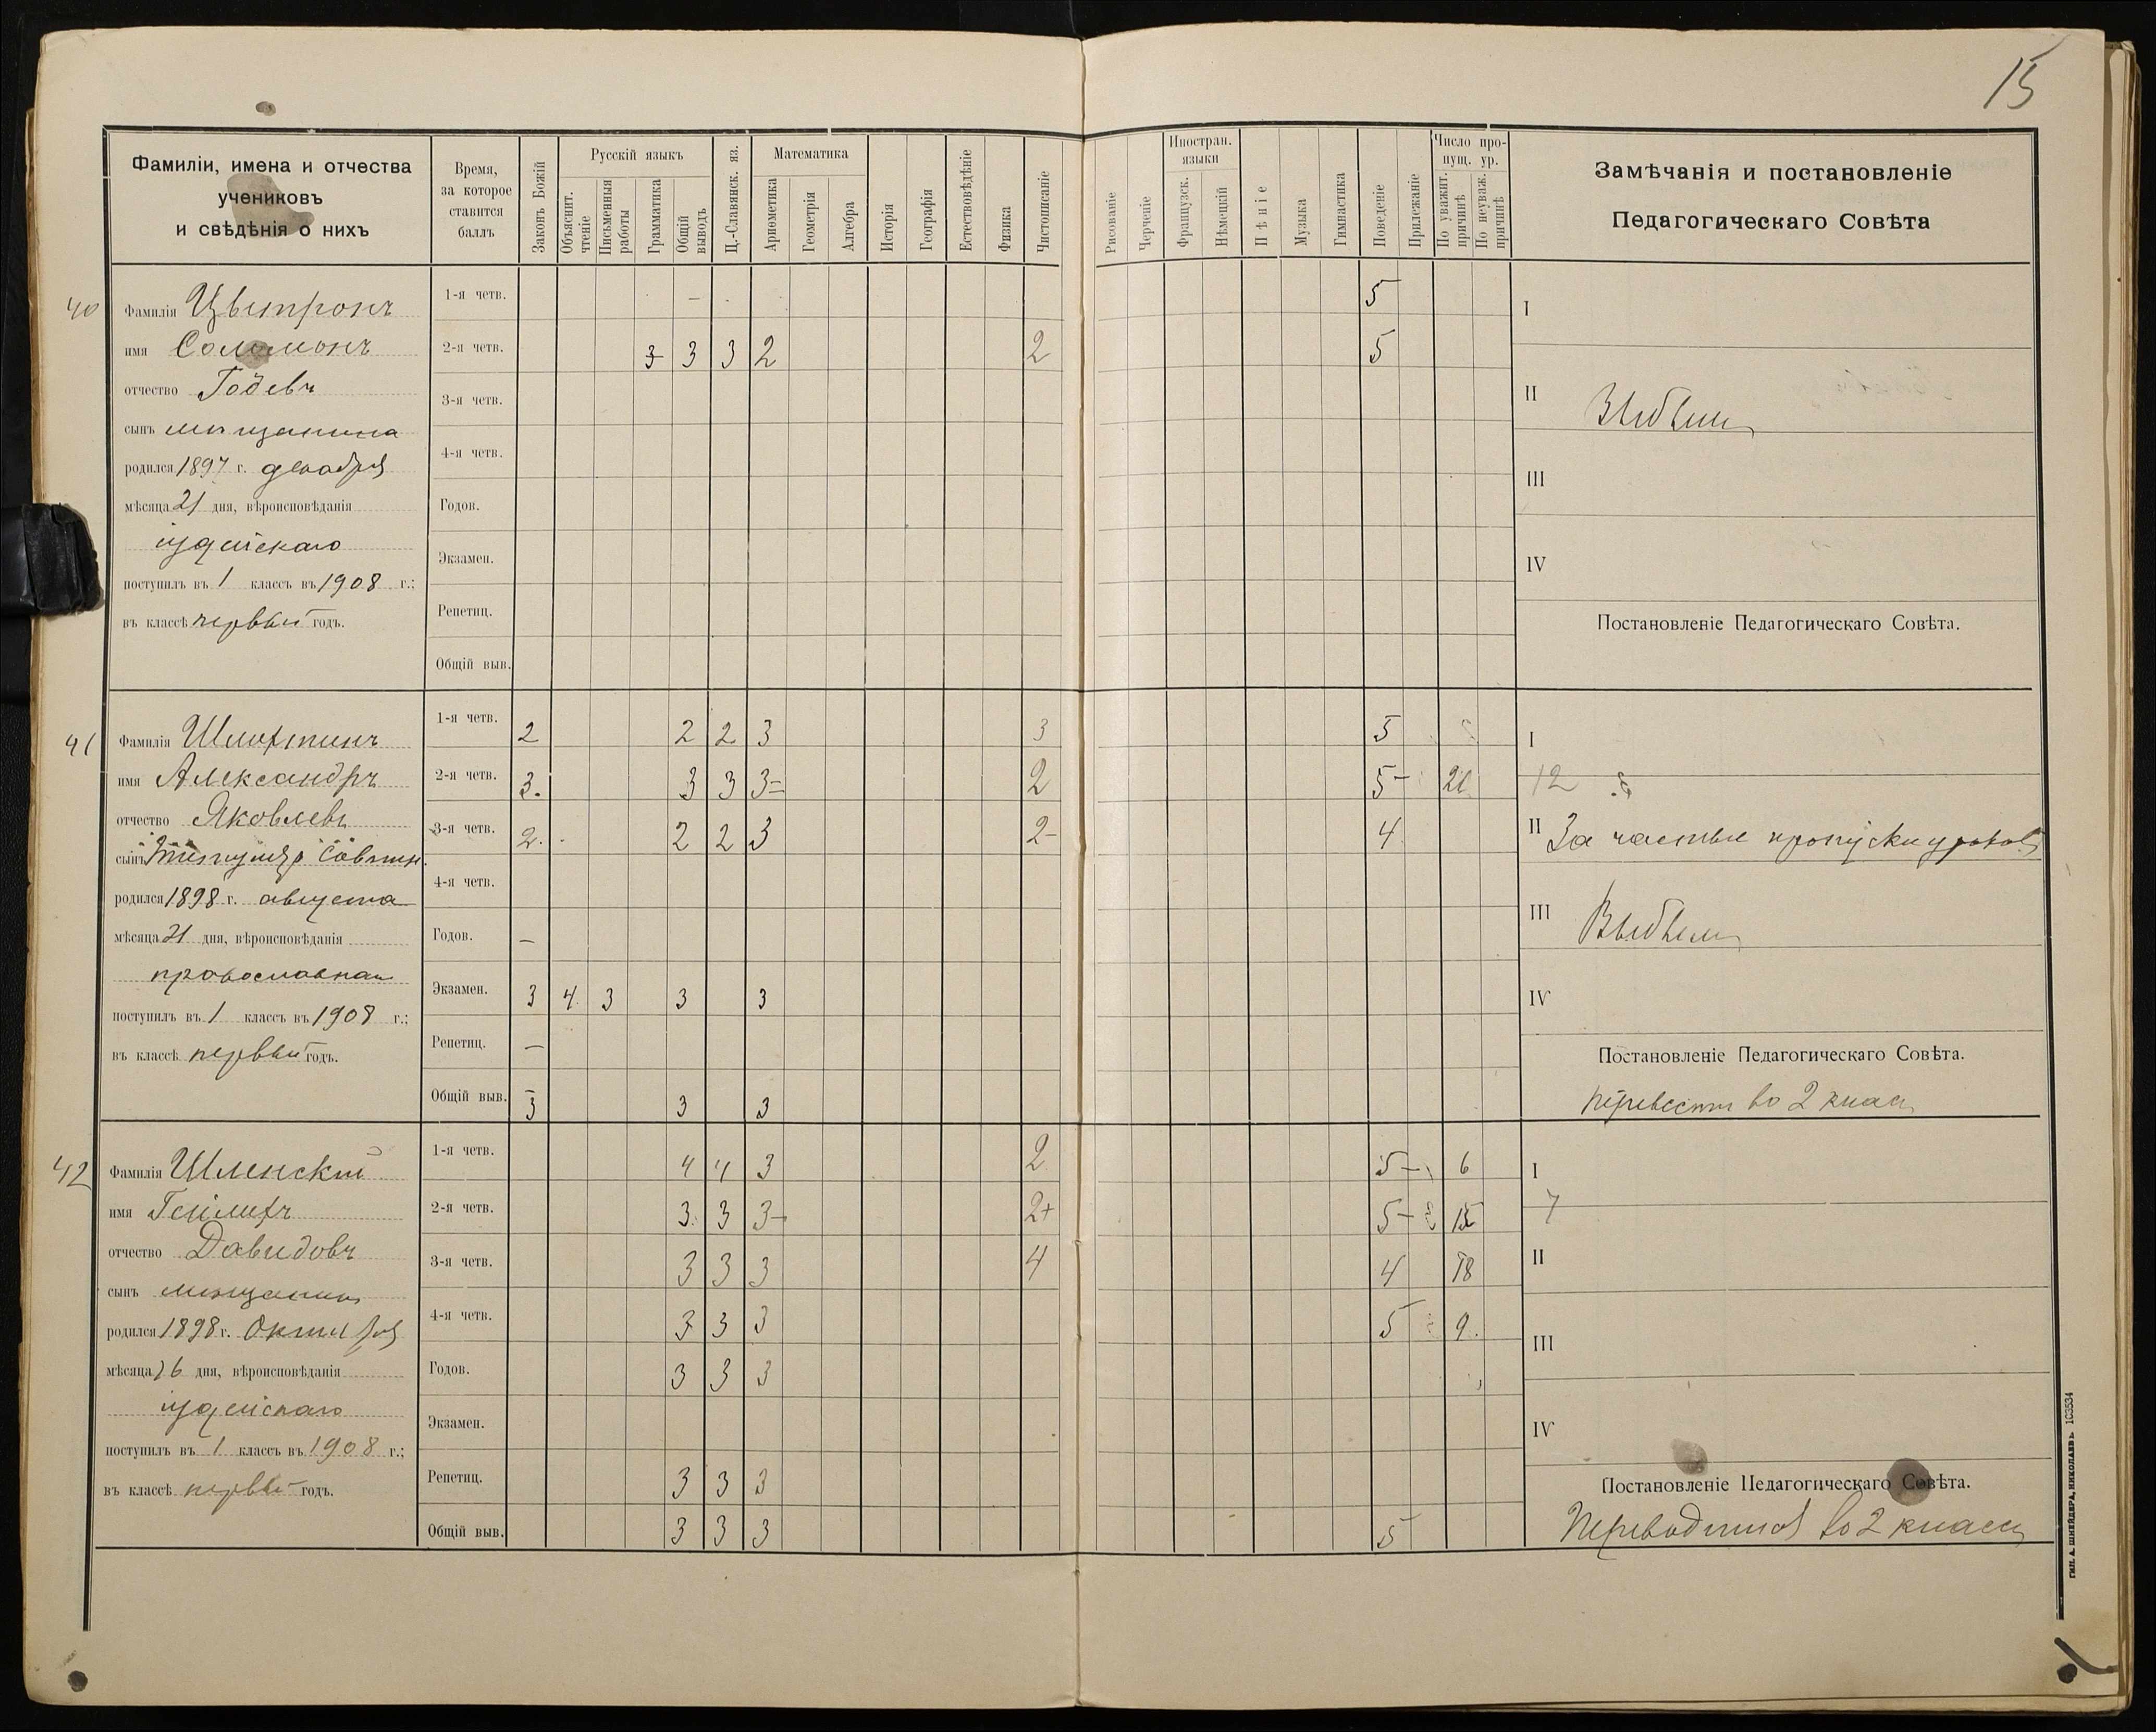 15
Фамиліи, имена и отчества
учениковъ
и свѣдѣнія о нихъ
Время,
за которое
ставится
баллъ
Законъ Божій
Русскій языкъ
Объяснит.
чтеніе
Письменныя
работы
Грамматика
Общій
выводъ
Ц.-Славянск. яз.
Математика
Ариѳметика
Геометрія
Алгебра
Исторія
Географія
Естествовѣдѣніе
Физика
Чистописаніе
Рисованіе
Черченіе
Иностран.
языки
Французск.
Нѣмецкій
Пѣніе
Музыка
Гимнастика
Поведеніе
Прилежаніе
Число про-
пущ. ур.
По уважит.
причинѣ
По неуваж.
причинѣ
Замѣчанія и постановленіе
Педагогическаго Совѣта
40
Фамилія
имя Соломонъ
отчество
сынъ мѣщанина
родился 1897 г. декабря
мѣсяца 21 дня, вѣроисповѣданія
іудейскаго
поступилъ въ 1 классъ въ 1908 г.;
въ классѣ первый годъ.
1-я четв. 5
2-я четв. 3 3 3 2 2 5
3-я четв.
4-я четв.
Годов.
Экзамен.
Репетиц.
Общій выв.
I
II Выбылъ
III
IV
Постановленіе Педагогическаго Совѣта.
41
Фамилія
имя Александръ
отчество Яковлевъ
сынъ
родился 1898 г. августа
мѣсяца 21 дня, вѣроисповѣданія
православнаго
поступилъ въ 1 классъ въ 1908 г.;
въ классѣ первый годъ.
1-я четв. 2 2 2 3 3 5
2-я четв. 3. 3 3 3= 2 5-
3-я четв. 2. 2 2 3 2- 4
4-я четв.
Годов. —
Экзамен. 3 4 3 3 3
Репетиц. —
Общій выв. 3 3 3
I
12
II За частые пропуски уроковъ
III Выбылъ
IV
Постановленіе Педагогическаго Совѣта.
перевести во 2 классъ
42
Фамилія Шленскій
имя
отчество Давидовъ
сынъ мѣщанина
родился 1898 г. Октября
мѣсяца 16 дня, вѣроисповѣданія
іудейскаго
поступилъ въ 1 классъ въ 1908 г.;
въ классѣ первый годъ.
1-я четв. 4 4 3 2 5- 6
2-я четв. 3 3 3- 2+ 5-
3-я четв. 3 3 3 4 4 18
4-я четв. 3 3 3 5 9.
Годов. 3 3 3
Экзамен.
Репетиц. 3 3 3
Общій выв. 3 3 3 5
I
7
II
III
IV
Постановленіе Педагогическаго Совѣта.
Переводится во 2 классъ
ТИП. А. ШНЕЙДЕРА, НИКОЛАЕВЪ. 103534